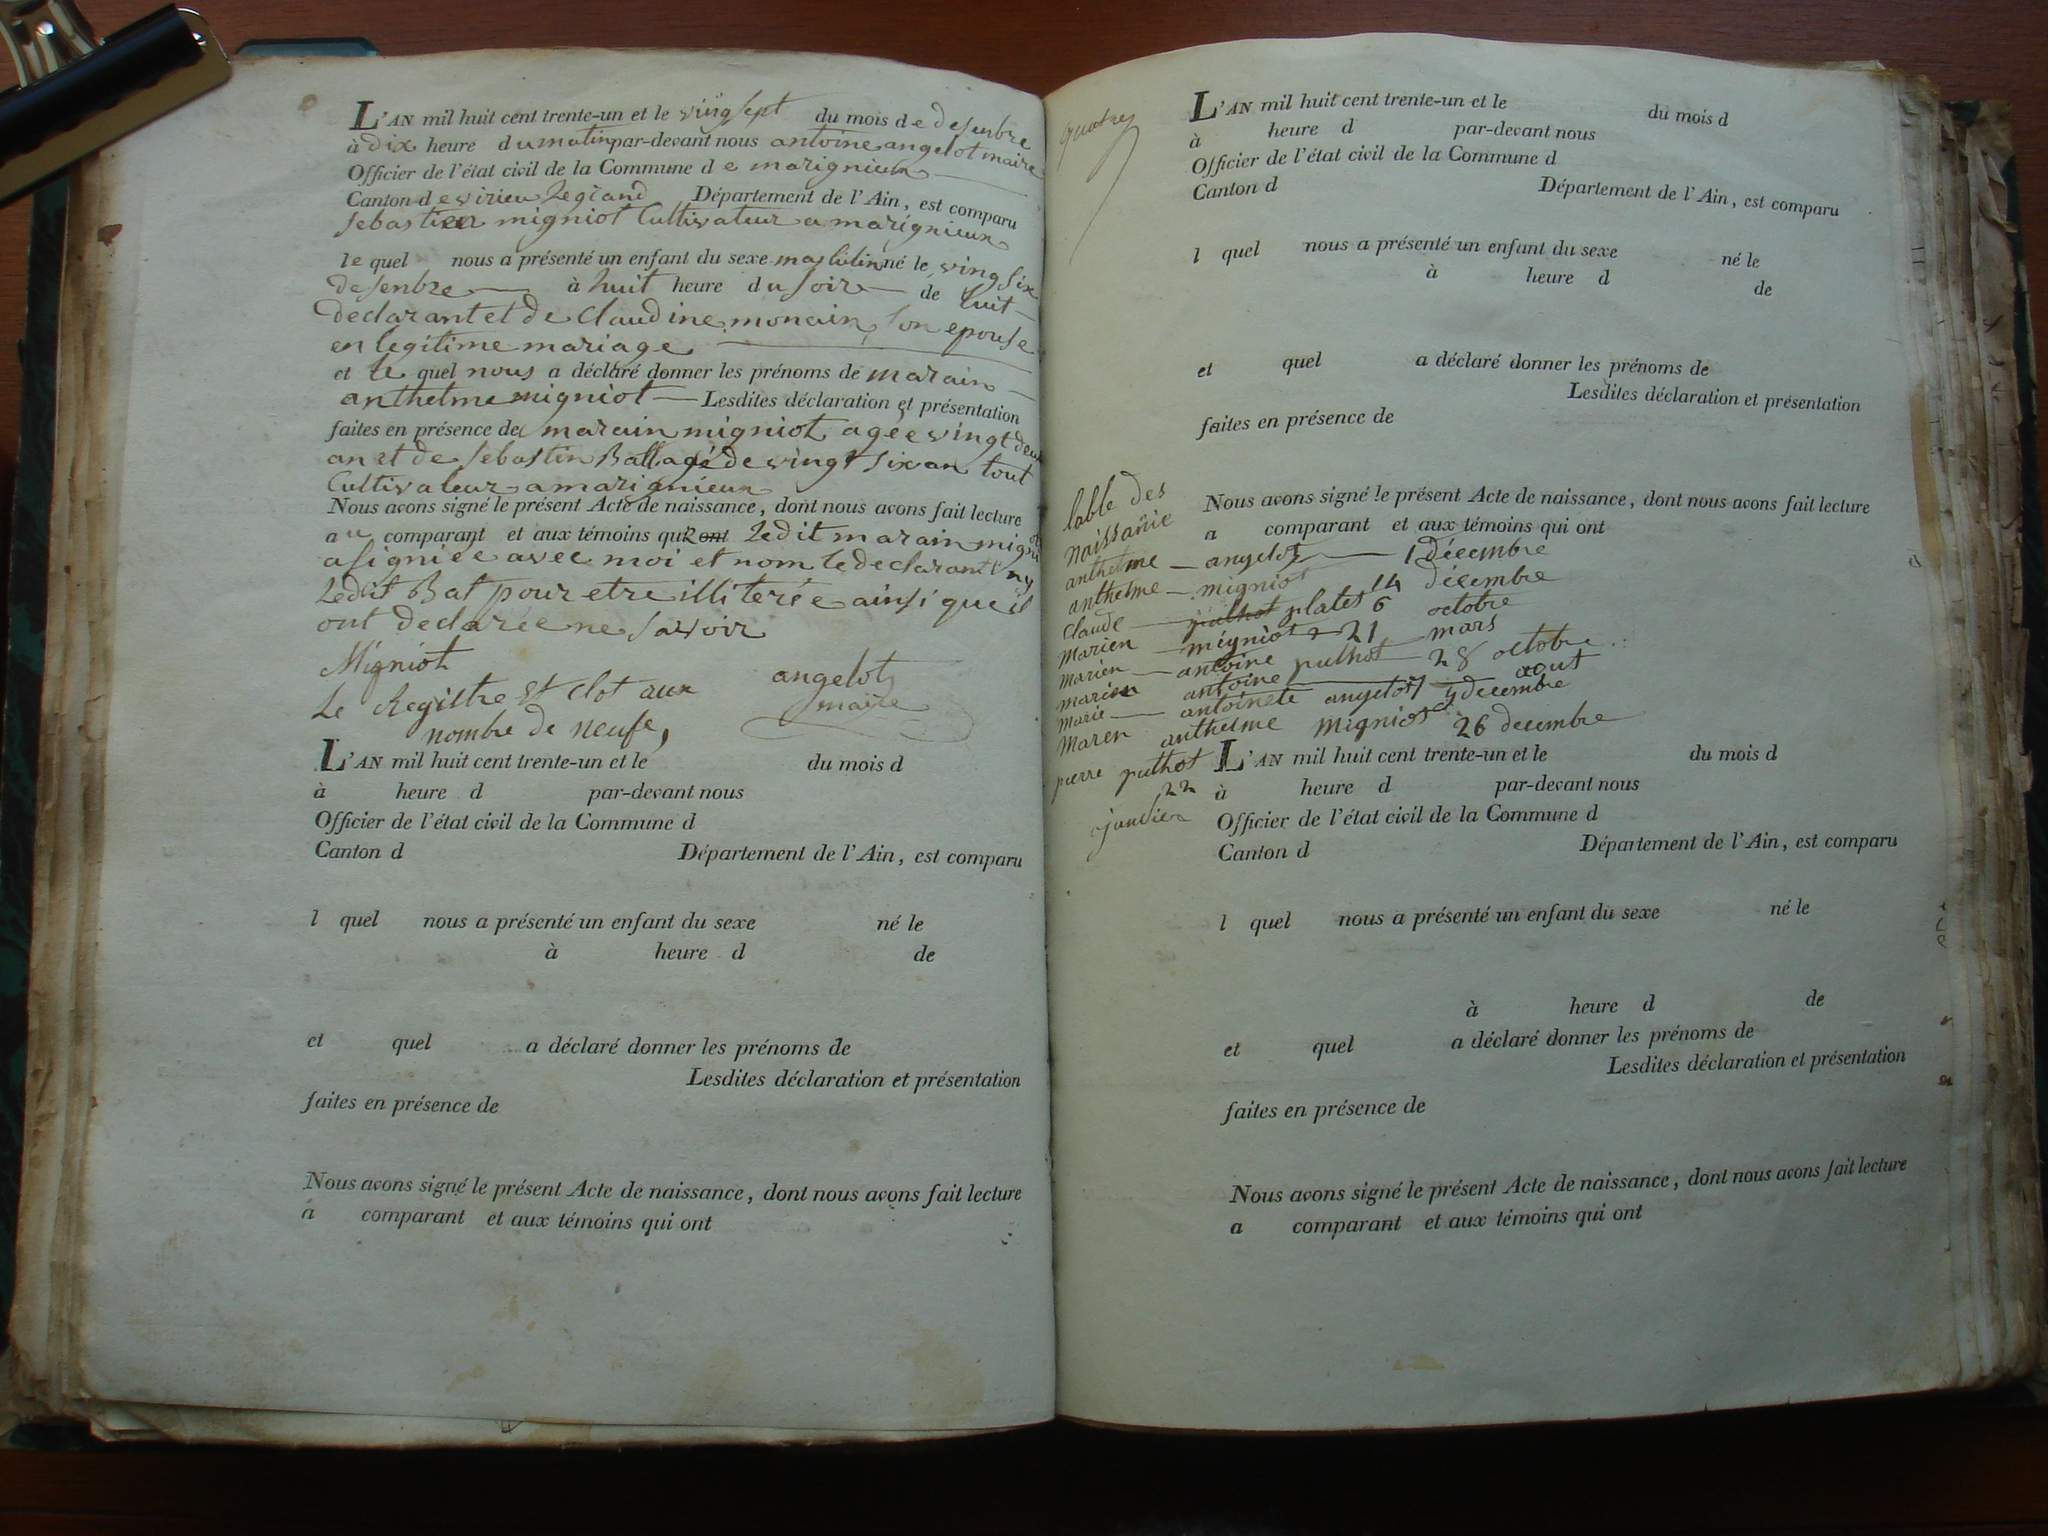 L'AN mil huit cent trente-un et le vingsept du mois de desenbre
à dix heure du matin par-devant nous antoine angelot maire
Officier de l'état civil de la Commune de marignieux
Canton de virieu Le grand Département de l'Ain, est comparu
sebastien migniot Cultivateur a marignieux
le quel nous a présenté un enfant du sexe masculin né le ving six
desenbre à huit heure du soir de luit
declarant et de Claudine monain son epouse
en legitime mariage
et le quel nous a déclaré donner les prénoms de marain
anthelme migniot Lesdites déclaration et présentation
faites en présence de marain migniot agée vingt deux
an et de sebastin Bat agé de vingt six an tout
Cultivateur a marignieux
Nous avons signé le présent Acte de naissance, dont nous avons fait lecture
au comparant et aux témoins qui ont Ledit marain migniot
a signiée avec moi et nom le declarant ny
Ledit Bat pour etre illiterée ainsi que il
ont declarée ne savoir
Migniot
angelot
maire
Le Registre est clot aux
nombre de neufe,
L'AN mil huit cent trente-un et le du mois d
à heure d par-devant nous
Officier de l'état civil de la Commune d
Canton d Département de l'Ain, est comparu
l quel nous a présenté un enfant du sexe né le
à heure d de
et quel a déclaré donner les prénoms de
Lesdites déclaration et présentation
faites en présence de
Nous avons signé le présent Acte de naissance, dont nous avons fait lecture
a comparant et aux témoins qui ont
quatre
L'AN mil huit cent trente-un et le du mois d
à heure d par-devant nous
Officier de l'état civil de la Commune d
Canton d Département de l'Ain, est comparu
l quel nous a présenté un enfant du sexe né le
à heure d de
et quel a déclaré donner les prénoms de
Lesdites déclaration et présentation
faites en présence de
Nous avons signé le présent Acte de naissance, dont nous avons fait lecture
a comparant et aux témoins qui ont
table des
naissance
anthelme angelot 1 décembre
anthelme migniot 14 décembre
claude plates 6 octobre
marien migniot 21 mars
marien antoine puthot 28 octobre
marien antoine aout
marie antoinete angelot 9 decembre
maren anthelme migniot 26 decembre
pierre puthot
22
janvier
L'AN mil huit cent trente-un et le du mois d
à heure d par-devant nous
Officier de l'état civil de la Commune d
Canton d Département de l'Ain, est comparu
l quel nous a présenté un enfant du sexe né le
à heure d de
et quel a déclaré donner les prénoms de
Lesdites déclaration et présentation
faites en présence de
Nous avons signé le présent Acte de naissance, dont nous avons fait lecture
a comparant et aux témoins qui ont